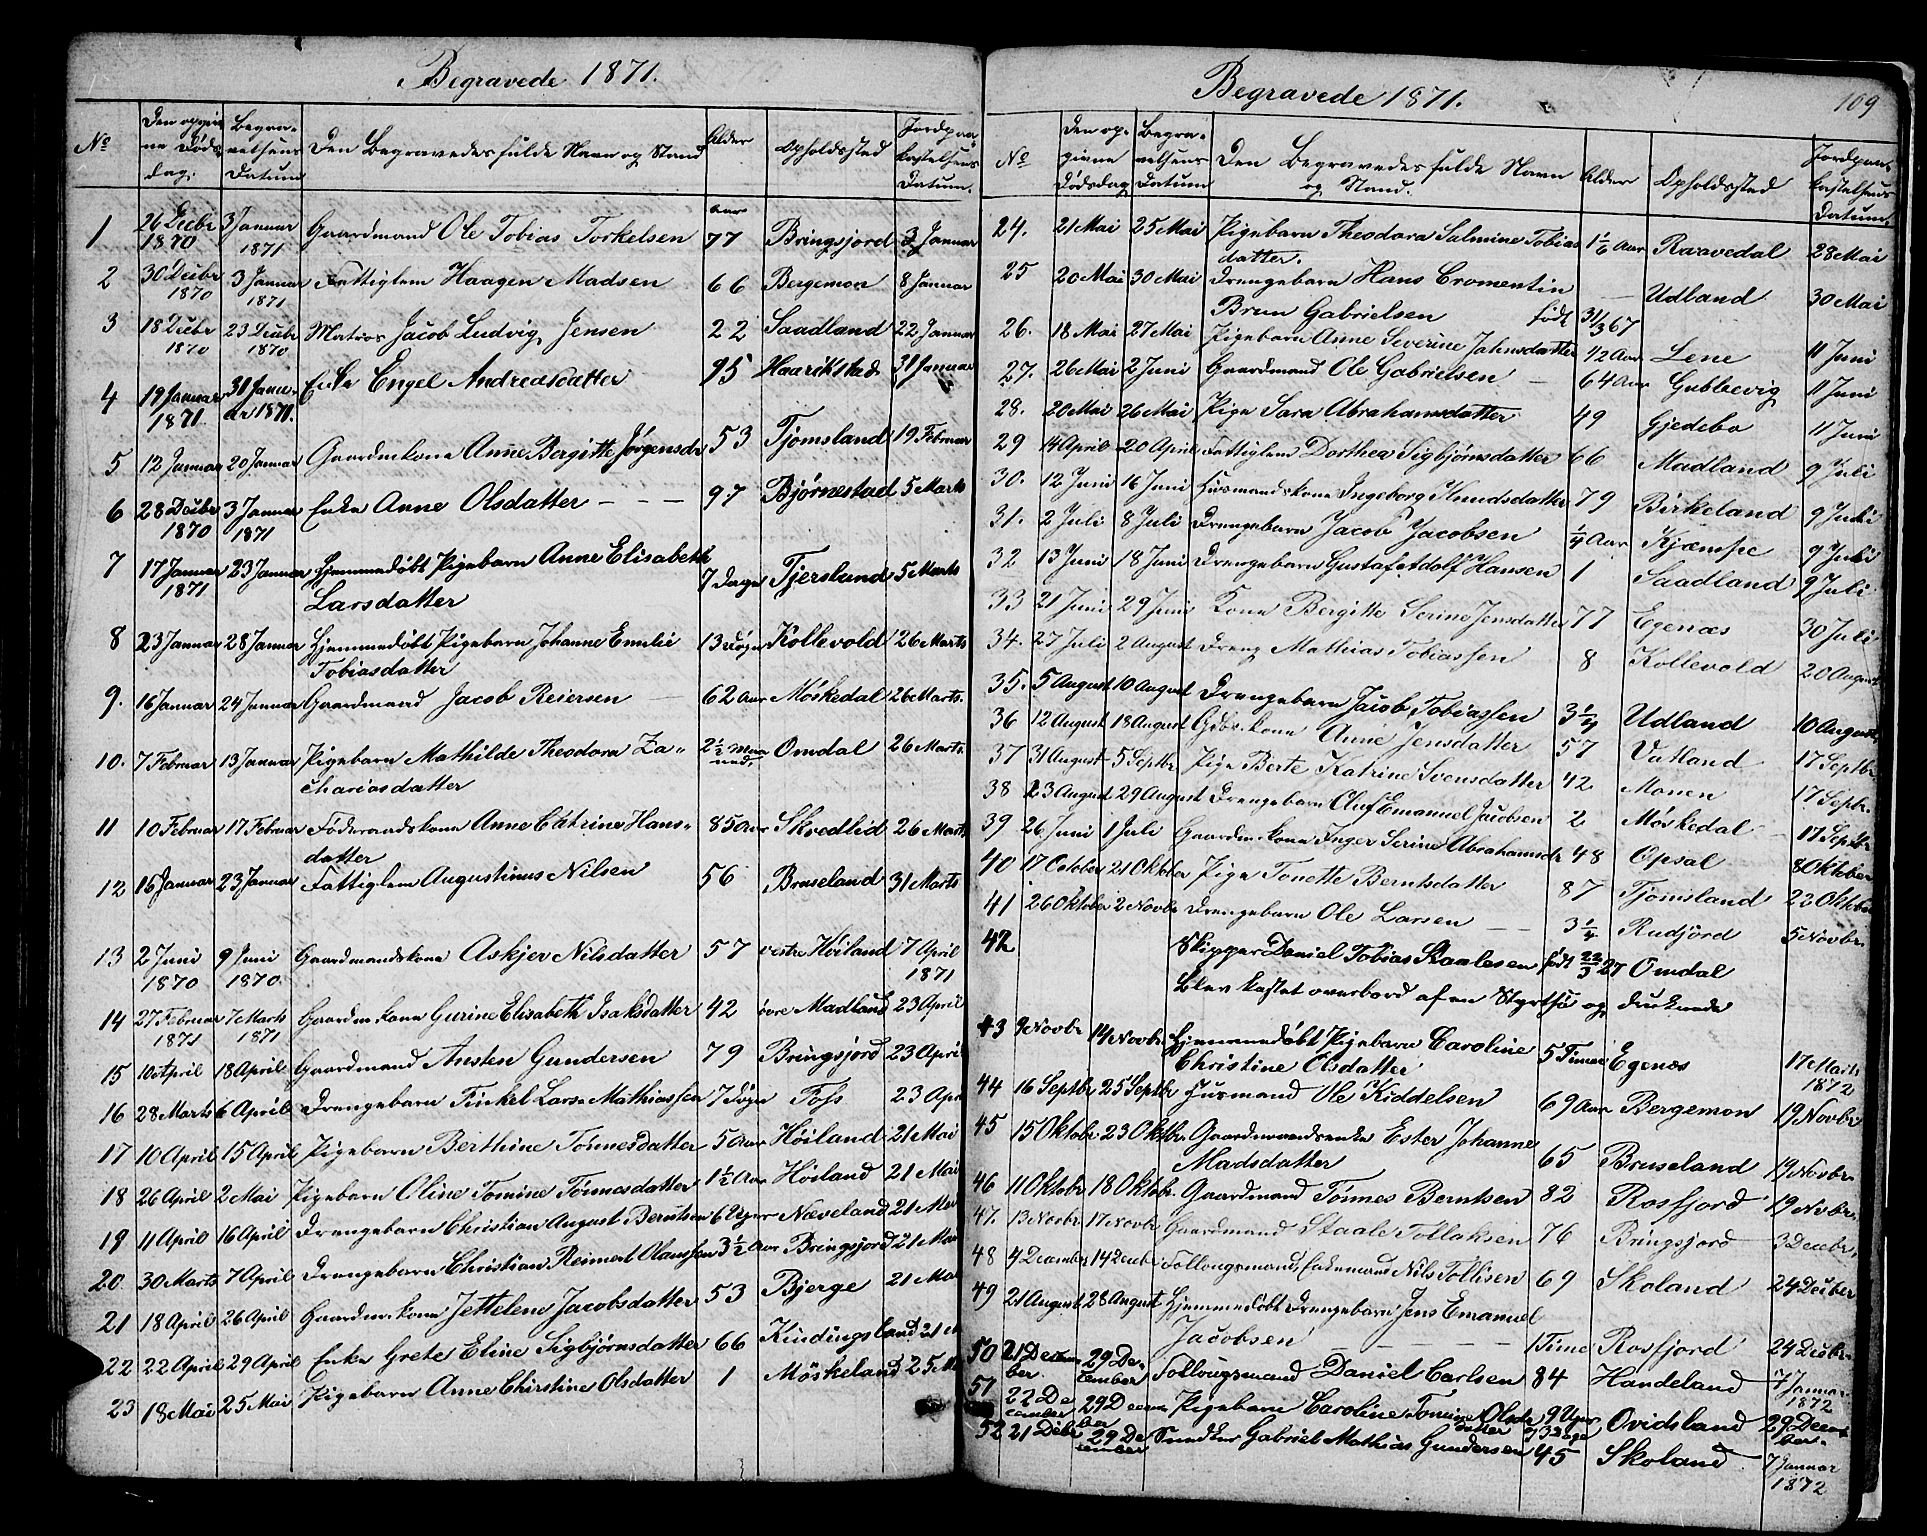 Begravede 1871.
No Den opgivne Dødsdag. Begravelsens Datum Den Begravedes fulde Navn og Stand Alder Opholdssted Jordpaakastelsens Datum.
1 26 Decbr 1870 3 Januar 1871 Gaardmand Ole Tobias Torkelsen 77 aar Bringsjord 3 Januar
2 30 Decbr 1870 3 Januar 1871 Fattiglem Haagen Madsen 66 Bergemon 8 Januar
3 18 Decbr 1870 23 Decbr 1870 Matros Jacob Ludvig Jensen 22 Saadland 22 Januar
4 19 Januar 1871. 31 Januar 1871. Enke Engel Andreasdatter 95 Haarikstad 31 Januar
5 12 Januar 20 Januar Gaardmkona Anne Bergitte Jørgensdr 53 Tjomsland 19 Februar
6 28 Decbr 1870 3 Januar 1871 Enke Anne Olsdatter - - - 97 Bjørnestad 5 Marts
7 17 Januar 1871 23 Januar Hjemmedøbt Pigebarn Anne Elisabeth
Larsdatter 7 Dage Tjersland 5 Marts
8 23 Januar 28 Januar Hjemmedøbt Pigebarn Johanne Emilie
Tobiasdatter 13 Døgn Kollevold 26 Marts
9. 16 Januar 24 Januar Gaardmand Jacob Reiersen 62 Aar Møskedal 26 Marts.
10. 7 Februar 13 Januar Pigebarn Mathilde Theodora Za-
chariasdatter 2½ Maaned. Omdal 26 Marts
11 10 Februar 17 Februar Föderaadskona Anne Catrine Hans-
datter 85 Aar Skredlid 26 Marts
12 16 Januar 23 Januar Fattiglem Augustinus Nilsen 56 Bruseland 31 Marts
13 2 Juni 1870 9 Juni 1870 Gaardmandskona Askjer Nilsdatter 57 vestre Høiland 7 April 1871
14 27 Februar 1871 7 Marts 1871 Gaardm.kona Gurine Elisabeth Isaksdatter 42 øvre Madland 23 April
15 10 April 18 April Gaardmand Ansten Gundersen 79 Bringsjord 23 April
16 28 Marts 6 April Drengebarn Tinkel Lars Mathiassen 7 Døgn Foss 23 Apri
17 10 April 15 April Pigebarn Berthine Tønnesdatter 5 Aar Høiland 21 Mai
18 26 April 2 Mai Pigebarn Oline Tomine Tønnesdatter 1½ Aar Høiland 21 Mai
19 11 April 16 April Drengebarn Christian August Berntsen 6 Uger Næveland 21 Mai
20 30 Marts 7 April Drengebarn Christian Reinert Olaussen 3½ Aar Bringsjord 21 Mai
21 18 April 26 April Gaardm.kona Jettelene Jacobsdatter 53 Bjerge 21 Mai
22 22 April 29 April Enke Grete Eline Sigbjørnsdatter 66 Kindingsland 21 M
23 18 Mai 25 Mai Pigebarn Anne Christine Olsdatter 1 Møskeland 25 M
Begravede 1871.
109
No Den opgivne Dødsdag Begravelsens Datum Den Begravedes fulde Navn og Stand. Alder Opholdssted Jordpaakastelsens Datum.
24. 21 Mai 25 Mai Pigebarn Theodora Salmine Tobias
datter. 1 1/6 Aar Raavedal 28 Mai
25 20 Mai 30 Mai Drengebarn Hans Cromentin
Brun Gabrielsen født 31/3 67 Udland 30 Mai
26. 18 Mai 27 Mai Pigebarn Anne Severine Jahnsdatter ½ Aar Lene 11 Juni
27. 26 Mai 2 Juni Gaardmand Ole Gabrielsen - 64 Aar Gubbevig 11 Juni
28. 20 Mai 26 Mai Pige Sara Abrahamsdatter 49 Gjedebo 11 Juni
29 14 April 20 April Fattiglem Dorthea Sigbjørnsdatter 66 Madland 9 Juli
30. 12 Juni 16 Juni Husmandskona Ingeborg Knudsdatter 79 Birkeland 9 Juli
31. 2 Juli 8 Juli Drengebarn Jacob Jacobsen ¼ Aar Kjæmpe 9 Juli
32 13 Juni 18 Juni Drengebarn Gustaf Adolf Hansen 1 Saadland 9 Juli
33 21 Juni 29 Juni Kona Bergitte Serine Jensdatter 77 Egenæs 30 Juli
34. 27 Juli 2 August Dreng Mathias Tobiassen 8 Kollevold 20 August
35. 5 August 10 August Drengebarn Jacob Tobiassen 3¼ Udland 10 August
36 12 August 18 August Gbr.kona Anne Jensdatter 57 Vatland 17 Septbr
37 31 August 5 Septbr Pige Berte Katrine Svensdatter 42 Monen 17 Sepbr.
38 23 August 29 August Drengebarn Oluf Emanuel Jacobsen 2 Møskedal 17 Septbr
39 26 Juni 1 Juli Gaardm.kona Inger Serine Abrahamsdr 48 Opsal 8 Oktober
40 17 October 21 Oktober Pige Tonette Berntsdatter 87 Tjomsland 22 Oktober
41 26 Oktober 2 Novbr Drengebarn Ole Larsen - - 3¼ Rudjord 5 Novbr.
42 Skipper Daniel Tobias Staalesen født 22/3 27 Omdal
blev kastet overbord af en Styrtsø og druknede
43 9 Novbr 14 Novbr Hjemmedøbt Pigebarn Caroline
Christine Olsdatter 5 Timer Egenæs 17 Marts 1872
44 16 Septbr 25 Septbr Husmand Ole Kiddelsen 69 Aar Bergemon 19 Novbr
45 15 Oktobr 23 Oktbr Gaardmandsenke Ester Johanne
Madsdatter 65 Bruseland 19 Novbr
46 11 Oktobr 18 Oktobr Gaardmand Tønnes Berntsen 82 Rosfjord 19 Novbr.
47. 13 Novbr 17 Novbr Gaardmand Staale Tollaksen 76 Bringsjord 3 Decbr.
48 9 December 14 Decbr Follougsmand, Enkemand Nils Tollisen 69 Skoland 24 Decber
49 21 August 28 August Hjemmedøbt Drengebarn Jens Emanuel
Jacobsen - - - 1 Time Rosfjord 24 Decbr.
50 21 December 29 December Follougsmand Daniel Carlsen 84 Handeland 7 Januar 1872
51 22 December 29 December Pigebarn Caroline Tomine Olsdatter 9 Uger og 3 Dage Ovidsland 29 December.
52 21 Decbr 29 December Snedker Gabriel Mathias Gundersen 45 Skoland 7 Januar 1872